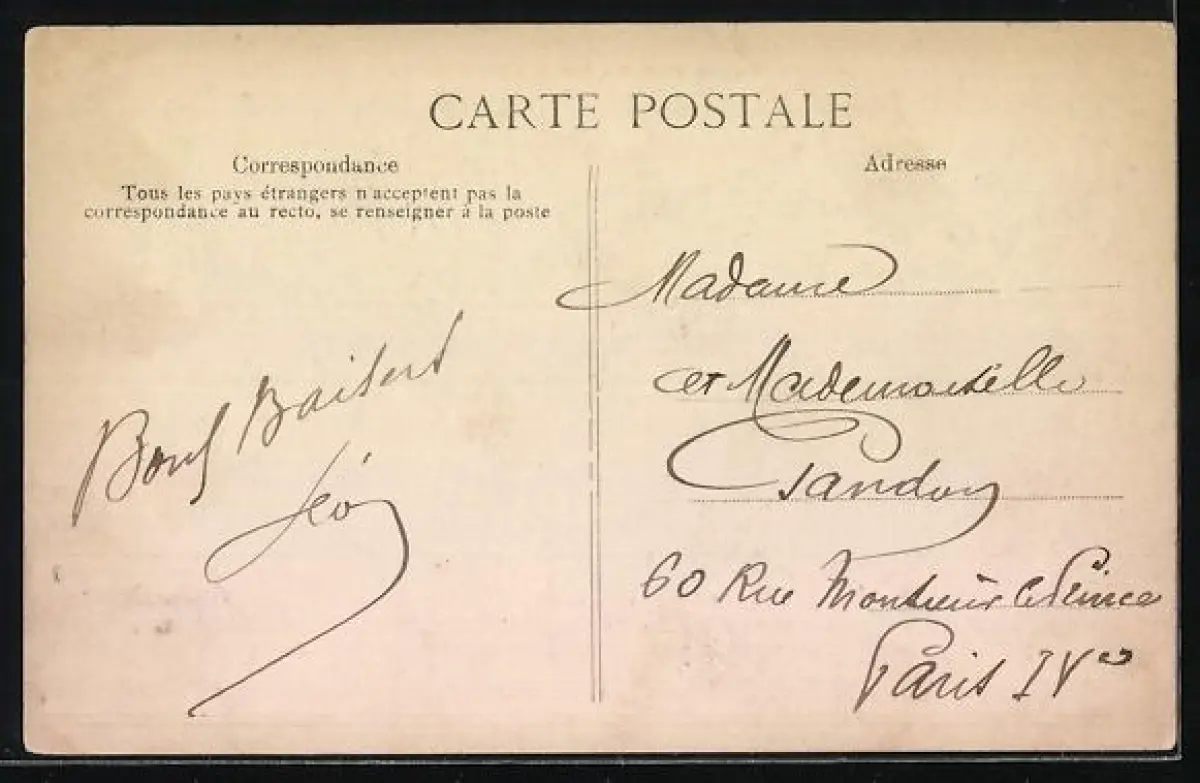 CARTE POSTALE
Correspondance
Tous les pays étrangers n'acceptent pas la
correspondance au recto, se renseigner à la poste
Bons Baisers
Léo
Adresse
Madame
et Mademoiselle
60 Rue Monsieur le Prince
Paris